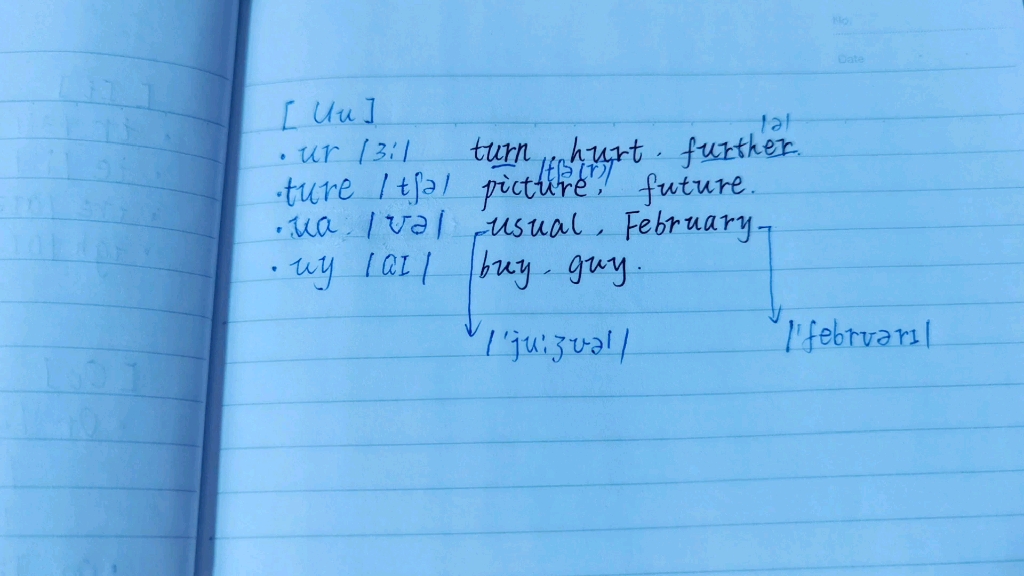 No:
Date
[ Uu ]
|ə|
· ur |ɜ:| turn, hurt. further.
|tʃə(r)|
· ture |tʃə| picture, future.
· ua |ʊə| usual, February
· uy |aɪ| buy. guy.
|'ju:ʒʊəl| |'febrʊərɪ|